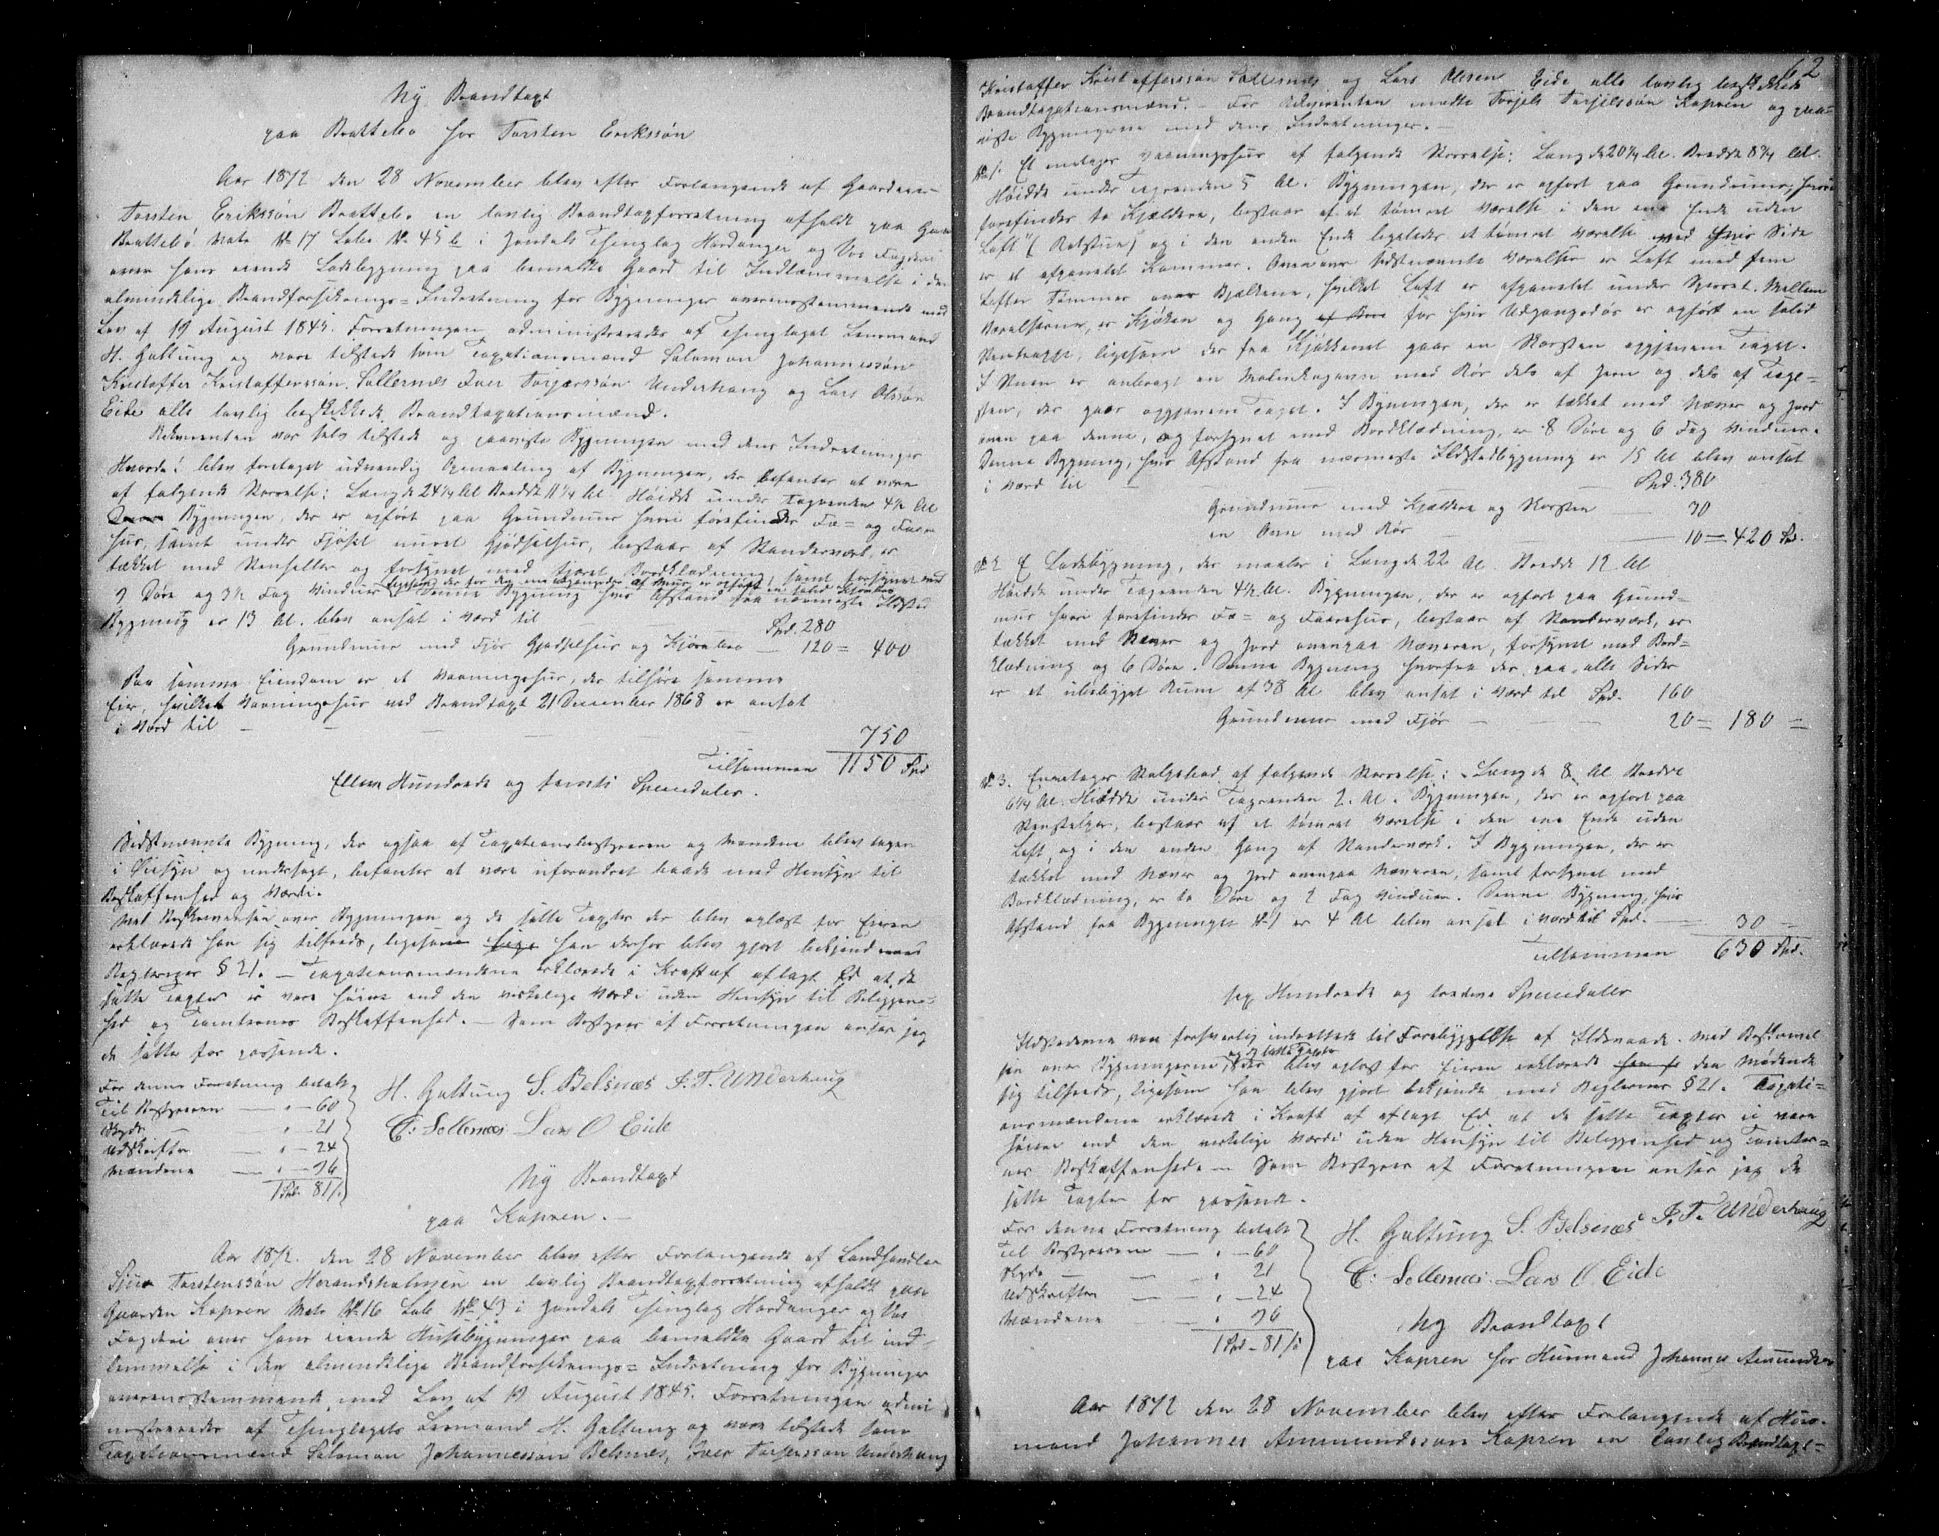 Ny Brandtaxt
paa Brattebø hos Torsten Erikssøn
Aar 1872 den 28 November blev efter Forlangende af Gaardeier
Torsten Erikssøn Brattebø en lovlig Brandtaxtforretning afholdt paa Gaarden
Brattebø Matr No 17 Løbe No 45 b i Jondals Thinglag Hardanger og Vos Fogderi
over hans eiende Ladebygning paa bemeldte Gaard til Indlemmelse i den
almindelige Brandforsikrings=Indretning for Bygninger overensstemmende med
Lov af 19 August 1845. Forretningen administreredes af Thinglagets Lensmand
H. Galtung og vare tilstede som Taxationsmænd Salomon Johannessøn
Kristoffer Kristofferssøn Sollesnæs Iver Torjerssøn Underhaug og Lars Olssøn
Eide alle lovlig beskikkede Brandtaxationsmænd.
Rekvirenten var selv tilstede og paaviste Bygningen med dens Indretninger
Hvorda! blev foretaget udvendig Opmaaling af Bygningen, der befantes at være
af følgende Størrelse: Længde 24 1/4 Al Bredde 11 1/4 Al Høide under Tagrenden 4 1/2 Al
Bygningen, der er opført paa Grundmur hvori forefindes Fæ= og Faare
hus, samt under Fjøset muret Gjødselhus, bestaar af Stenderværk, er
tækket med Stenheller og forsynet med tjæret Bordklædning, samt forsynet med
9 Døre og 3 1/2 Fag Vinduer ligesom der for den ene Langside af Mur er opført en solid Kjørebro
Denne Bygning hvis Afstand fra nærmeste Ildsted
Bygning er 13 Al. blev ansat i Værd til Spd. 280
Grundmur med Fjør Gjødselhus og Kjørebro — 120 = 400
Paa samme Eiendom er et Vaaningshus, der tilhøre samme
Eier, hvilket Vaaningshus ved Brandtaxt 21 December 1868 er ansat
i Værd til — — — 750
Tilsammen 1150 Spd
Elleve Hundrede og femti Speciedaler.
Sidstnævnte Bygning, der ogsaa af Taxationsbestyreren og Mændene blev tagen
i Øiesyn og undersøgt, befantes at være uforandret baade med Hensyn til
Beskaffenhed og Værdi.
Med Beskrivelsen over Bygningen og de satte Taxter der blev oplæst for Eieren
erklærede han sig tilfreds, ligesom han derhos blev gjort bekjendt med
Reglernes § 21. — Taxationsmændene erklærede i Kraft af aflagt Ed at de
satte Taxter ei vare høiere end den virkelige Værdi uden Hensyn til Beliggen=
hed og Tomternes Beskaffenhed. — Som Bestyrer af Forretningen anser jeg
de satte for passende.
For denne Forretning betalt
Til Bestyreren — " — 60
Skyds — " — 21
Udskriften — " — 24
Mændene — " — 96
1 Spd. 81 s.
H. Galtung S. Belsnæs I. T. Underhaug
C: Sollesnæs Lars O Eide
Ny Brandtaxt
paa Kapren. —
Aar 1872. den 28 November blev efter Forlangende af Landhandler
Sjur Torstenssøn Herandsholmen en lovlig Brandtaxtforretning afholdt paa
Gaarden Kapren Matr No 16 Løbe No 43 i Jondals Thinglag Hardanger og Vos
Fogderi over hans eiende Husebygninger paa bemeldte Gaard til Ind=
lemmelse i den almindelige Brandforsikrings=Indretning for Bygninger
overensstemmende med Lov af 19 August 1845. Forretningen admi
nistreredes af Thinglagets Lensmand H. Galtung og vare tilstede som
Taxationsmænd Salomon Johannessøn Belsnes, Iver Torjerssøn Underhaug
62
Kristoffer Kristofferssøn Sollesnæs og Lars Olssøn Eide alle lovlig beskikkede
Brandtaxationsmænd. — For Rekvirenten mødte Torjels Torjelssøn Kapren og paa=
viste Bygningerne med dens Indretninger. —
No 1. Et enetages Vaaningshus af følgende Størrelse: Længde 20 1/4 Al. Bredde 8 1/4 Al.
Høide under Tagrenden 5 Al. Bygningen, der er opført paa Grundmur, hvori
forefindes to Kjældere, bestaar af et tømret Værelse i den ene Ende uden
Loft (Røkstue) og i den anden Ende ligeledes et tømret Værelse ved hvis Side
er et afpanelet Kammer. Over sidstnævnte Værelser er Loft med fem
Tolfter Tømmer over Bjælkene, hvilket Loft er afpanelet under Sperret. Mellem
Værelserne, er Kjøken og Gang for hvis Udgangsdør er opført en solid
Stentrappe, ligesom der fra Kjøkkenet gaar en Skorsten opgjenem Taget.
I Stuen er anbragt en Malmkagovn med Rør dels af Jern og dels af Tegl=
sten, der gaar opgjenem Taget. I Bygningen, der er tækket med Næver og Jord
oven paa denne, og forsynet med Bordklædning, er 8 Døre og 6 Fag Vinduer.
Denne Bygning, hvis Afstand fra nærmeste Ildstedbygning er 15 Al blev ansat
i Værd til — — — Spd. 380
Grundmur med Kjældere og Skorsten — 30
en Ovn med Rør — 10 — 420 Spd.
No 2 E Ladebygning, der maaler i Længde 22 Al. Bredde 12 Al
Høide under Tagrenden 4 1/2 Al. Bygningen, der er opført paa Grund=
mur hvori forefindes Fæ= og Faarehus, bestaar af Stenderværk, er
tækket med Næver og Jord ovenpaa Næveren, forsynet med Bord=
klædning og 6 Døre. Denne Bygning hvorfra der paa alle Sider
er et ubebygget Rum af 38 Al blev ansat i Værd til Spd. 160
Grundmur med Fjør — — 20 = 180 =
No 3. Enetages Stolpebod af følgende Størrelse: Længde 8 Al Bredde
6 1/4 Al. Høide under Tagrenden 2. Al. Bygningen, der er opført paa
Stenstolper, bestaar af et tømret Værelse i den ene Ende uden
Loft, og i den anden Gang af Stenderværk. I Bygningen, der er
tækket med Næver og Jord ovenpaa Næveren, samt forsynet med
Bordklædning, er to Døre og 2 Fag Vinduer. Denne Bygning, hvis
Afstand fra Bygningen No 1 er 4 Al blev ansat i Værd til Spd. — 30 =
Tilsammen 630 Spd.
sex Hundrede og tredive Speciedaler
Ildstederne vare forsvarlig indrettede til Forebyggelse af Ildsvaade. Med Beskrivel
sen over Bygningerne og de satte Taxter, der blev oplæst for Eieren erklærede den Mødende
sig tilfreds, ligesom han blev gjort bekjendt med Reglernes § 21. Taxati=
onsmændene erklærede i Kraft af aflagt Ed at de satte Taxter ei vare
høiere end den virkelige Værdi uden Hensyn til Beliggenhed og Tomter=
nes Beskaffenhed. — Som Bestyrer af Forretningen anser jeg de
satte Taxter for passende.
For denne Forretning betalt
Til Bestyreren — " — 60
Skyds — " 21
Udskriften — " — 24
Mændene — " 96
1 Spd — 81 s
H. Galtung S. Belsnæs I. T. Underhaug
C: Sollesnæs. Lars O. Eide
Ny Brandtaxt
paa Kapren hos Husmand Johannes Amundsen
Aar 1872 den 28 November blev efter Forlangende af Hus=
mand Johannes Ammundssøn Kapren en lovlig Brandtaxt=